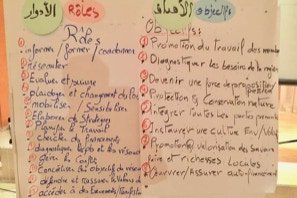 الأدوار Rôles
Rôles
informer / former / coordonner
Réseauter
Evaluer et suivre
plaidoyer et changement de
mobiliser / Sensibiliser
Elaborer des Stratégies
Planifier le Travail
cherche de financements
diagnostiquer les et les ressources
Gérer les Conflits
Concilier les objectifs du réseau
défendre et les valeurs du
accéder à des
الأهداف objectifs
Objectifs
Promotion du travail des membres
Diagnostiquer les besoins de la région
Devenir une force de proposition
Protection & Conservation nature
Intégrer toutes les parties prenantes
Instaurer une culture Env/
Promotion & valorisation des savoirs
faire et richesses locales
Assurer auto-financement